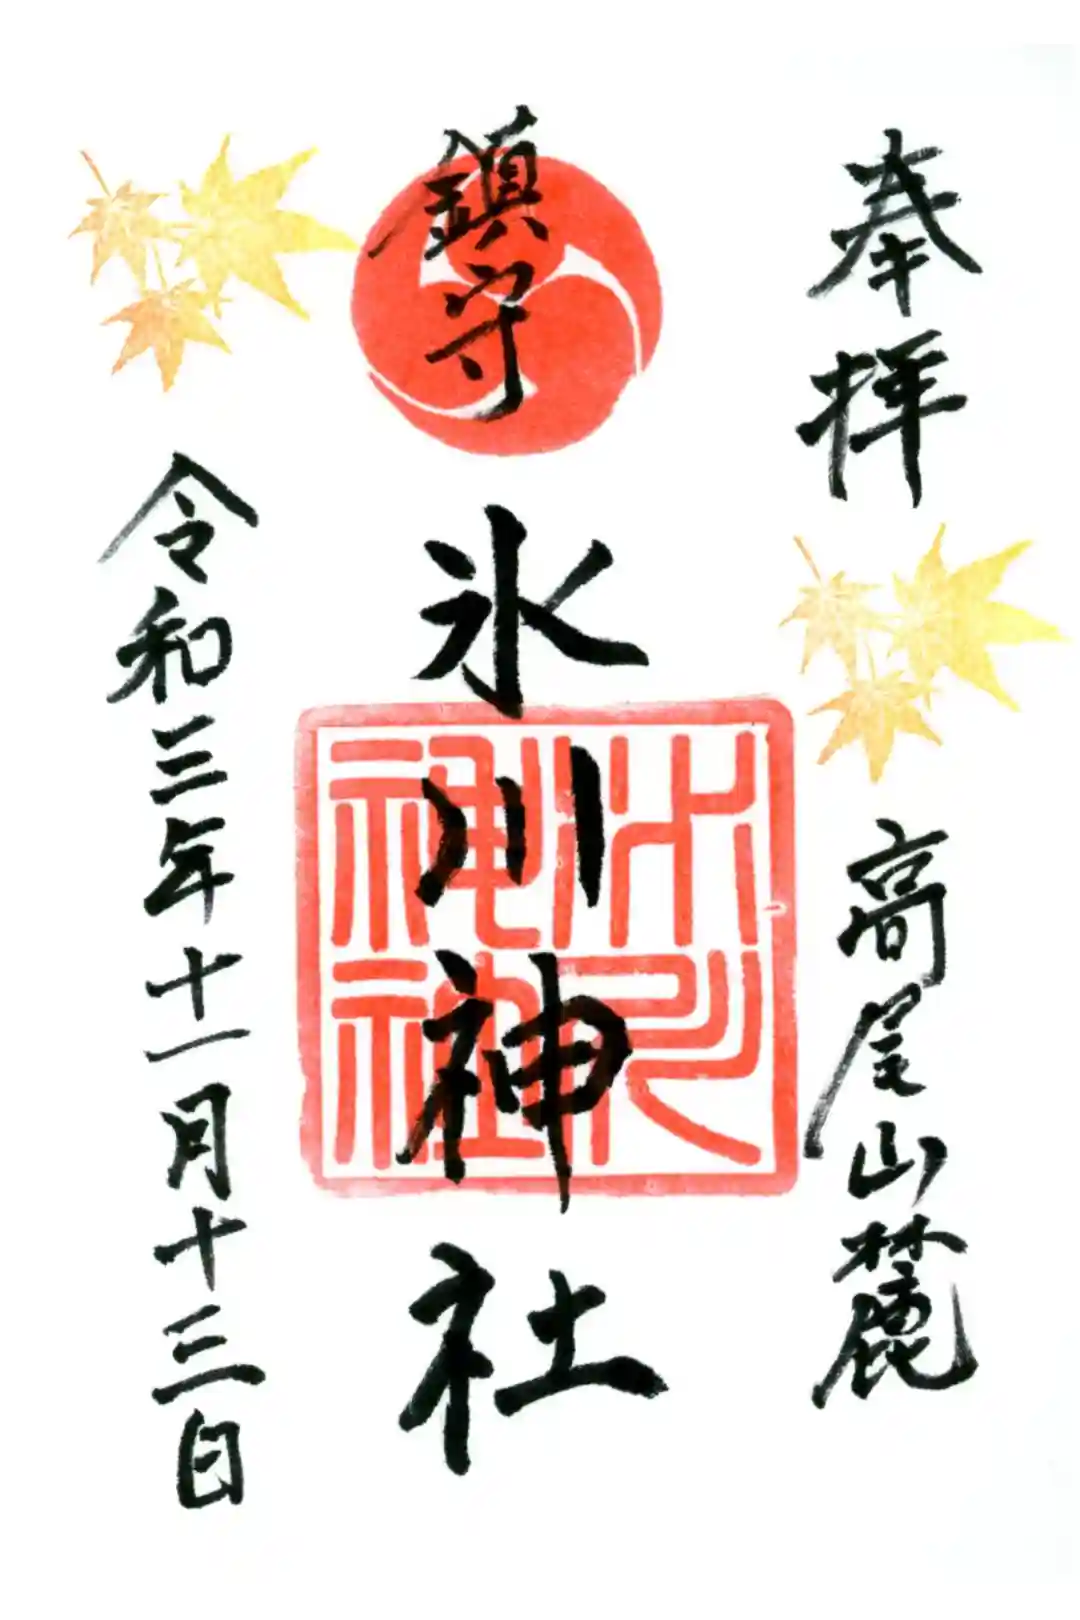 奉拝
高尾山麓
鎮守
氷川神社
令和三年十一月十三日
氷川
神社